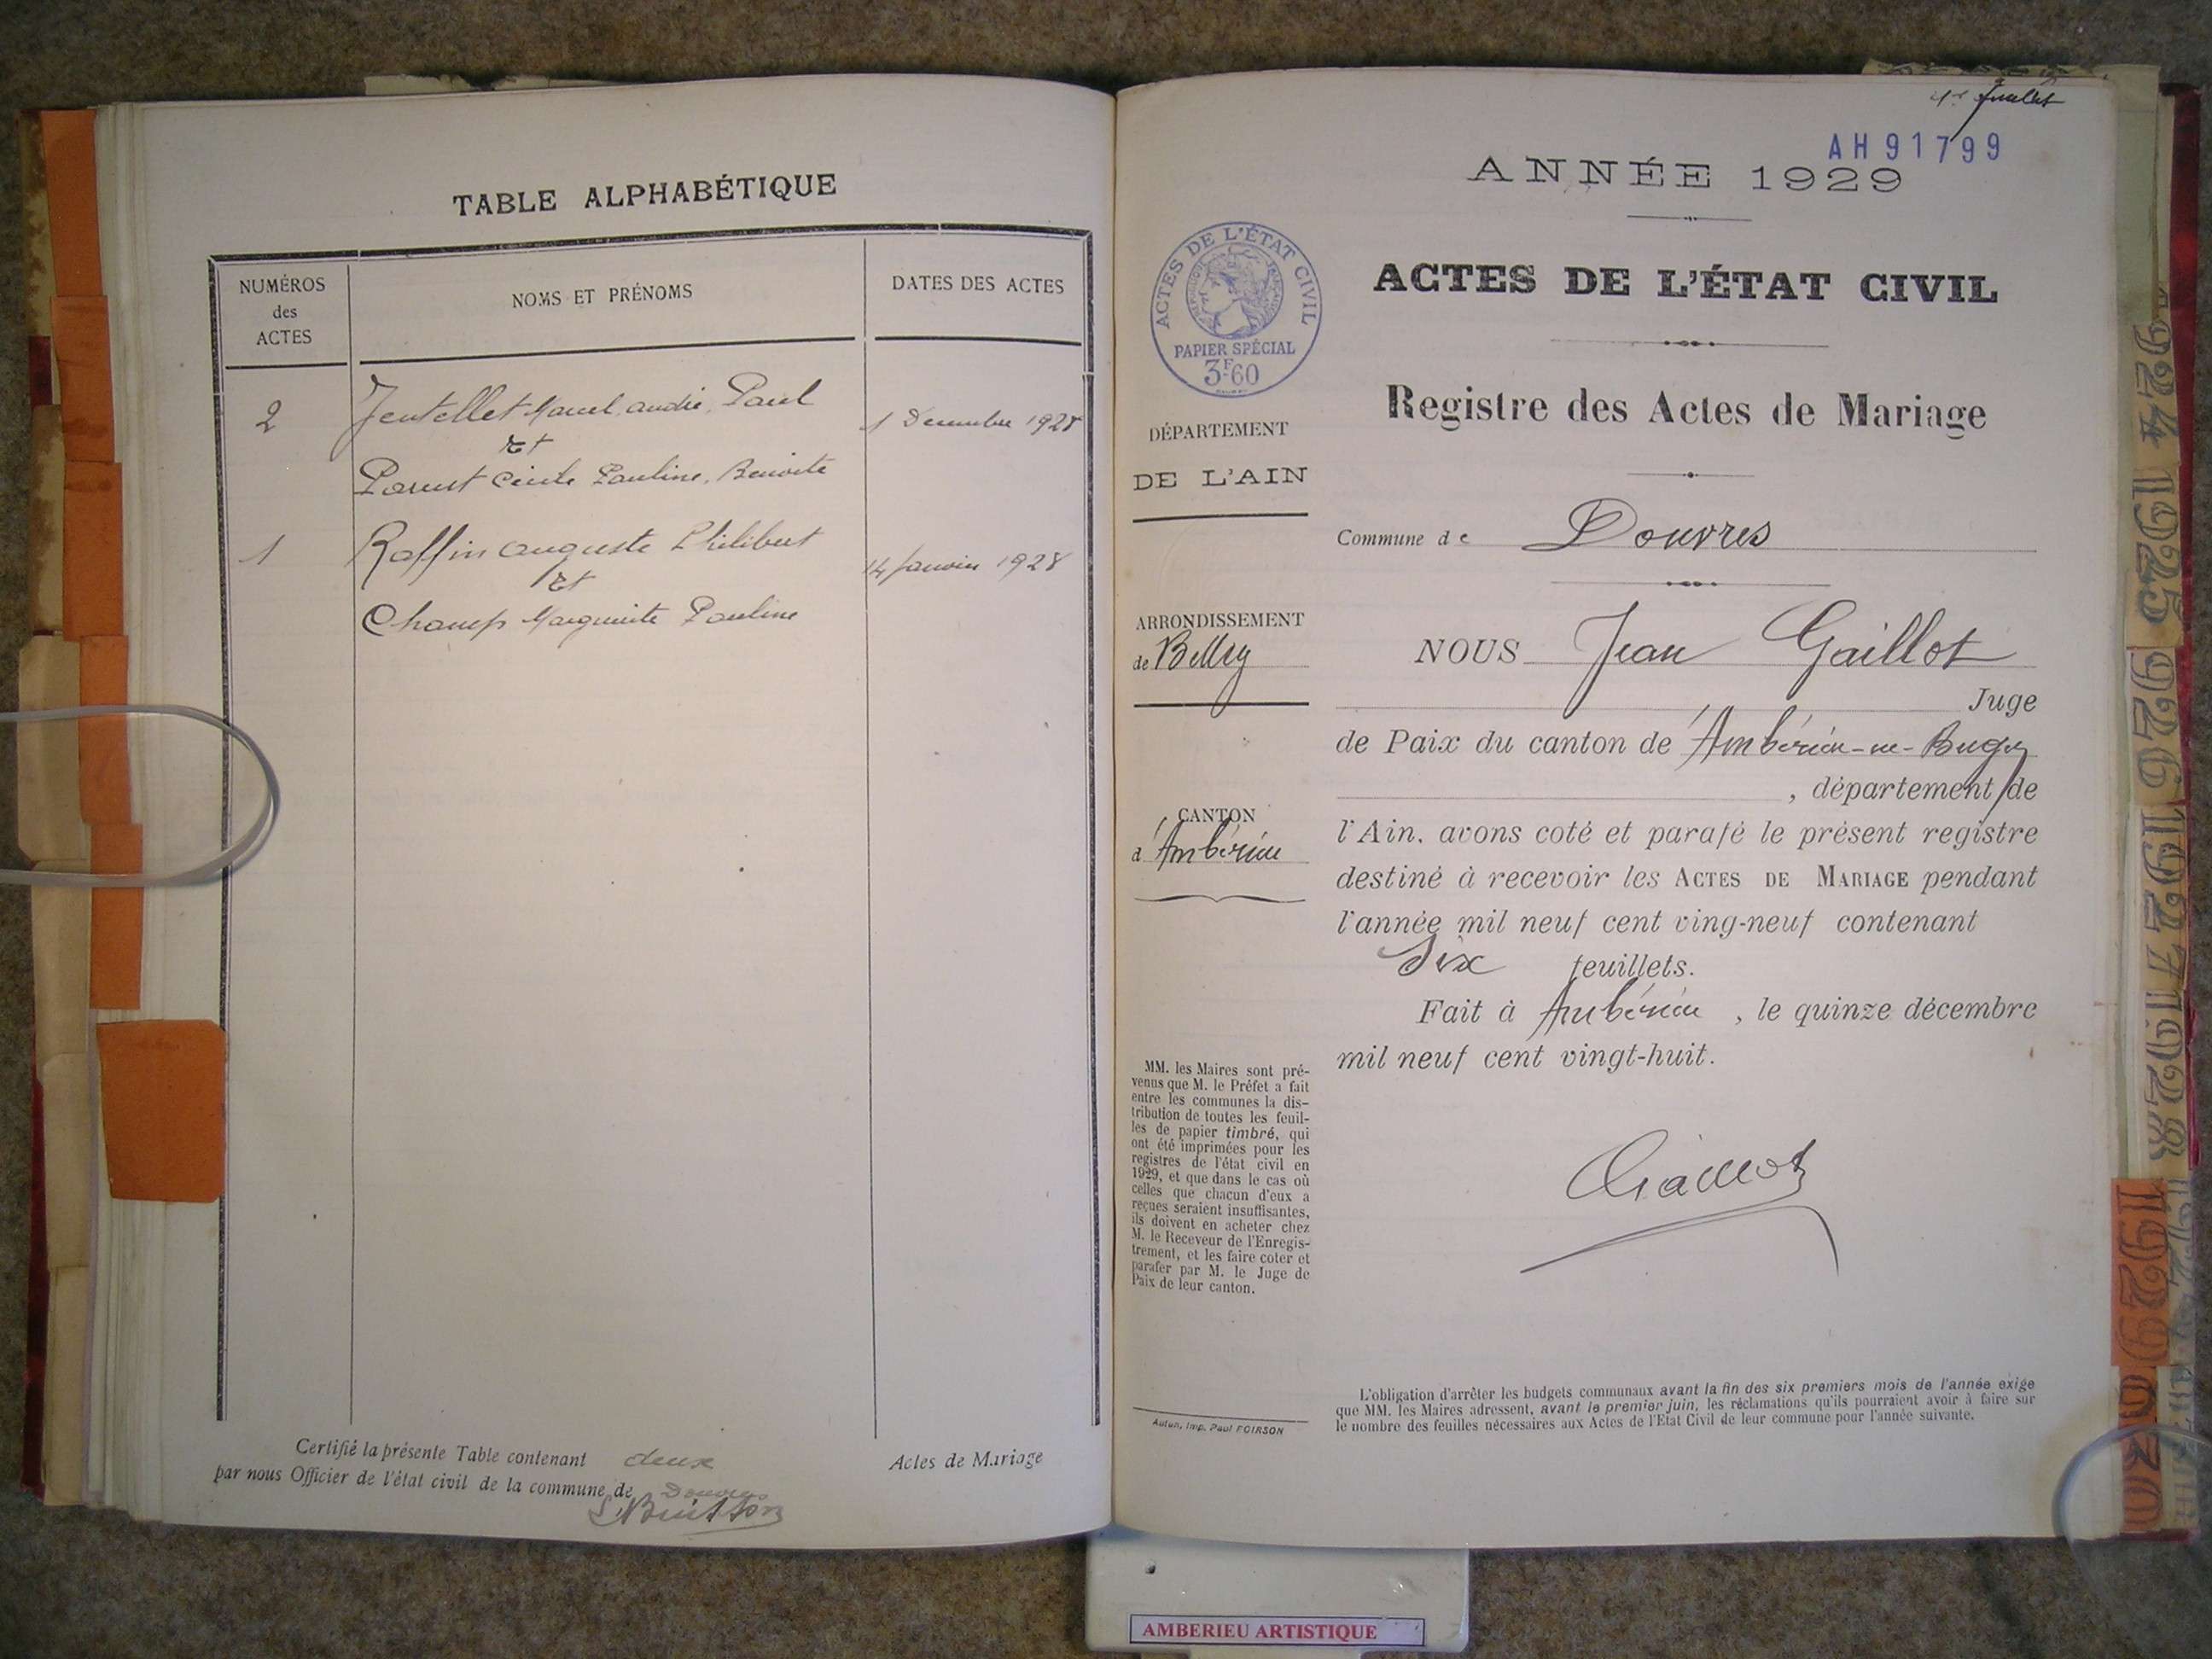 TABLE ALPHABÉTIQUE
NUMÉROS
des
ACTES
NOMS ET PRÉNOMS
DATES DES ACTES
2
Jentellet Marcel, André, Paul
1 Décembre 1928
et
Pauline, Benoite
1
Raffin Auguste Philibert
14 Janvier 1928
et
Champ Marguerite Pauline
Certifié la présente Table contenant deux Actes de Mariage
par nous Officier de l'état civil de la commune de Douvres
Buisson
1er feuillet
AH 91799
ANNÉE 1929
ACTES DE L'ÉTAT CIVIL
PAPIER SPÉCIAL
3F60
ACTES DE L'ÉTAT CIVIL
Registre des Actes de Mariage
DÉPARTEMENT
DE L'AIN
Commune de Douvres
ARRONDISSEMENT
de Belley
CANTON
d'Ambérieu
NOUS Jean Gaillot
Juge
de Paix du canton de Ambérieu-en-Bugey
, département de
l'Ain, avons coté et parafé le présent registre
destiné à recevoir les ACTES DE MARIAGE pendant
l'année mil neuf cent ving-neuf contenant
Six feuillets.
Fait à Ambérieu, le quinze décembre
mil neuf cent vingt-huit.
Gaillot
MM. les Maires sont pré-
venus que M. le Préfet a fait
entre les communes la dis-
tribution de toutes les feuil-
les de papier timbré, qui
ont été imprimées pour les
registres de l'état civil en
1929, et que dans le cas où
celles que chacun d'eux a
reçues seraient insuffisantes,
ils doivent en acheter chez
M. le Receveur de l'Enregis-
trement, et les faire coter et
parafer par M. le Juge de
Paix de leur canton.
Autun, Imp. Paul FOIRSON
L'obligation d'arrêter les budgets communaux avant la fin des six premiers mois de l'année exige
que MM. les Maires adressent, avant le premier juin, les réclamations qu'ils pourraient avoir à faire sur
le nombre des feuilles nécessaires aux Actes de l'Etat Civil de leur commune pour l'année suivante.
1924
1925
1926
1927
1928
1929
AMBERIEU ARTISTIQUE